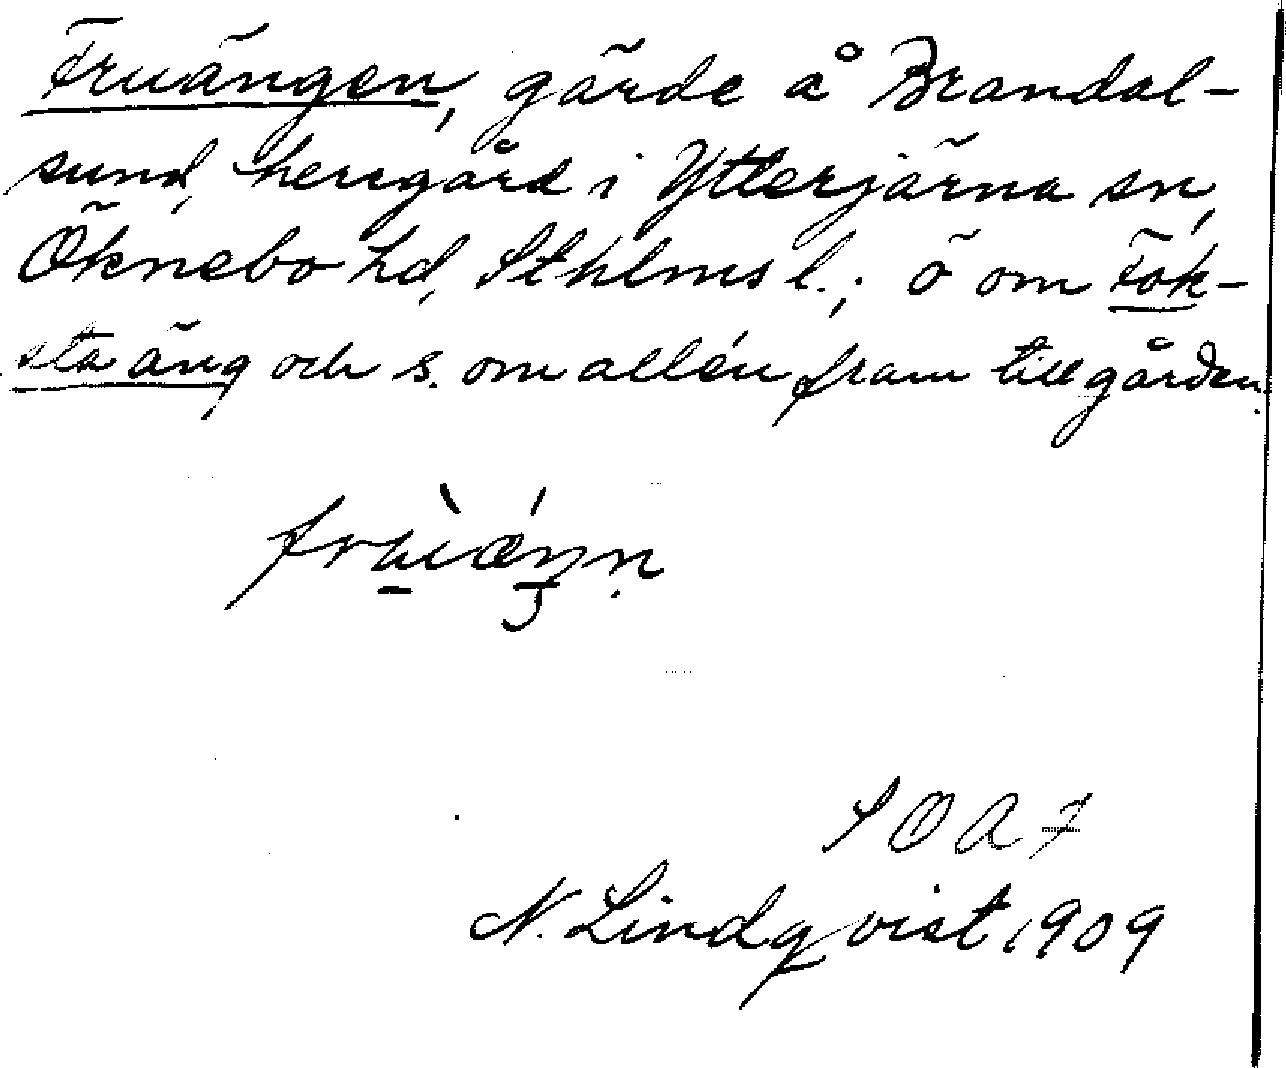 Fruängen, gärde å Brandal-
sund, herrgård i Ytterjärna sn,
Öknebo hd, Sthlms l.; ö om Fok-
sta äng och s. om allén fram till gården.
SOA 7
N. Lindqvist 1909